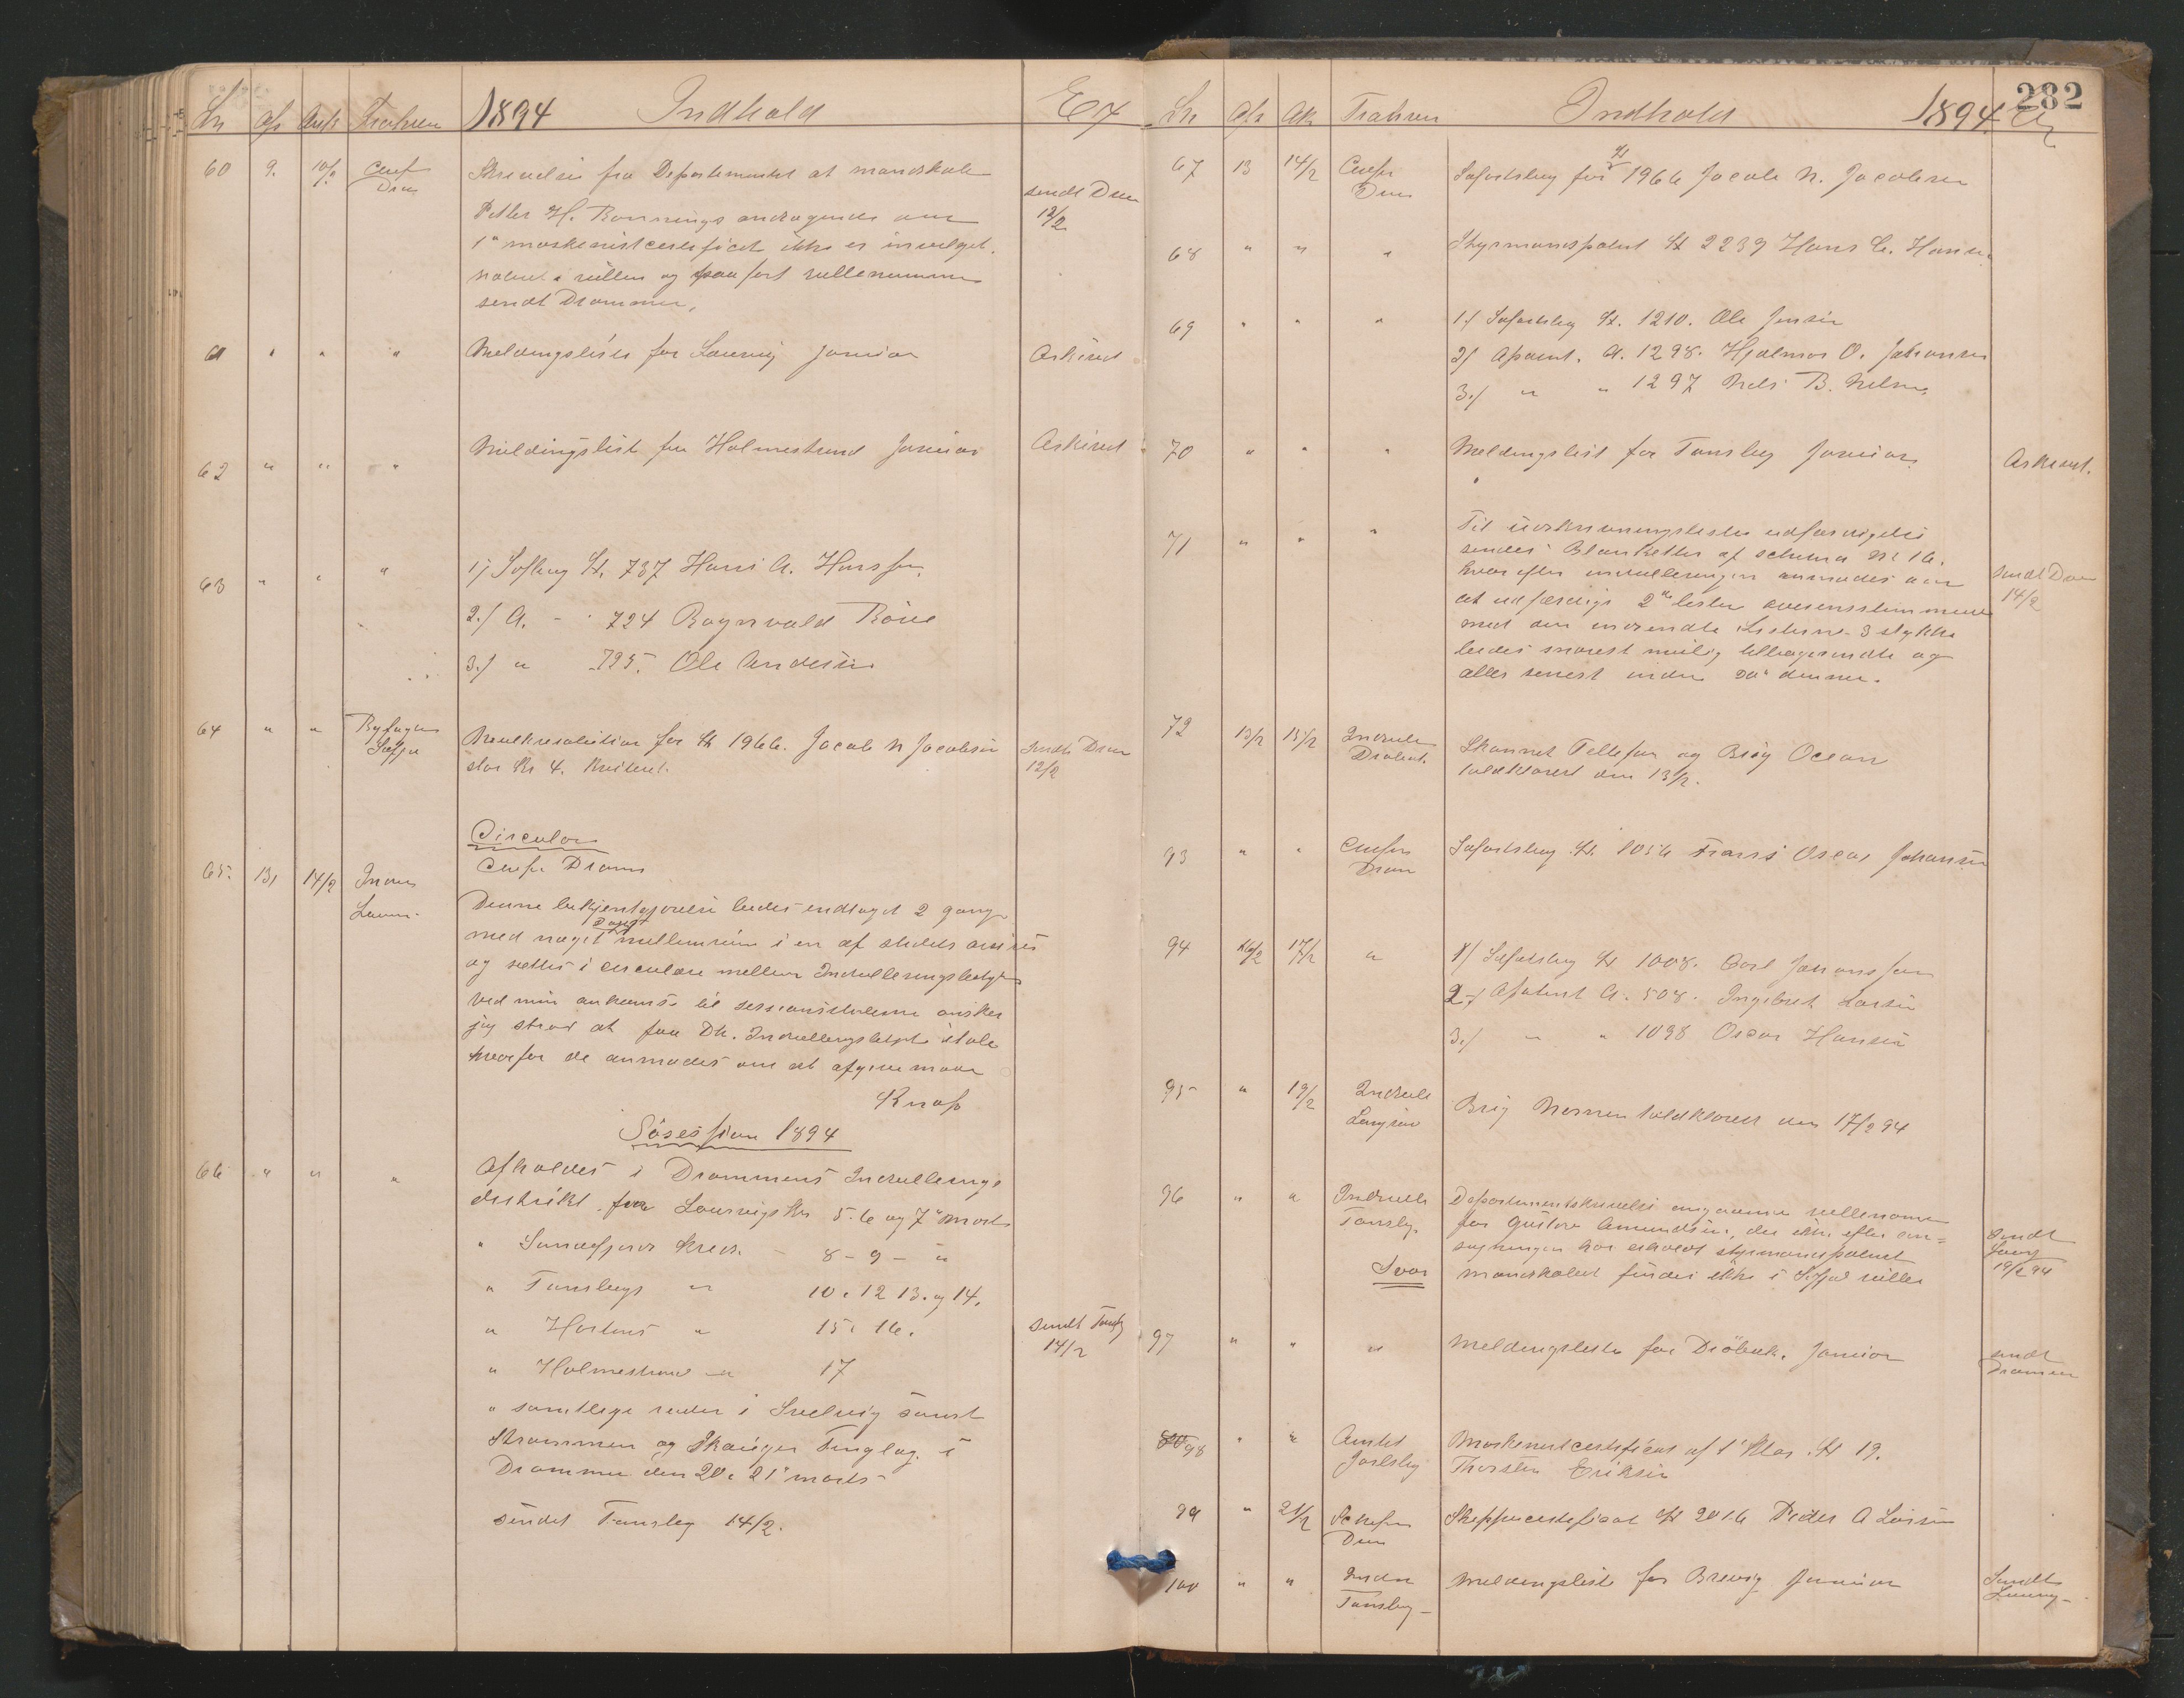 1894 Indhold Ex
60 9. 10/2 Skrivelse fra Departementet at mandskab
Petter H. Ronnings andragende om
sendt Drm
12/2
1ᵉ maskinistcertificat ikke er invilget.
noteret i rullen og paafort rullenummer
sendt Drammen.
61 " " " Meldingsliste for Laurvig Januar Arkivet
62 " " " Meldingsliste for Holmestrand Januar Arkivet
63 " " " 1) Søfbrg H. 737 Hans A. Hansen
2.) A. - 724 Ragnvald Röne
3.) " 725. Ole Andersen
64 " " Byfogen Mulktresolution for H 1966. Jacob N Jacobsen
stor Kr 4. Sendt Drm
12/2
Circulær
65. 13, 14/2 Chefen Dramm
Denne bekjentgjorelse bedes indtaget 2 gange
med noget mellemrum i en af stedets aviser
og sættes i circulære mellem Indrulleringsbetjent
Ved min ankomst til sessionsstederne ønsker
jeg strax at faa Dh. Indrulleringsbetjent i tale
hvorfor de anmodes om at afgive møde
Knap
Sösession 1894
66 " " " Afholdes i Drammens Indrullerings
distrikt. for Laurvigs Krs 5. 6 og 7ᵉ Marts
" Sandefjords Kreds. - 8 - 9 - "
" Tønsbergs " 10. 12 13. og 14.
" Hortens " 15. 16.
sendt Tønsbg
14/2
" Holmestrand " 17
" samtlige ruller i Svelvig samt
Strømmen og Skauger Tinglag i
Drammen den 20. 21ᵉ marts
sendet Tønsberg 14/2.
282
Indhold 1894
67 13 14/2 Chefen
Drm
Søfartsbrg for H 1966 Jacob N. Jacobsen
68 " " " Styrmandspatent H 2239 Hans C. Hansen
69 " " " 1.) Søfartsbg H. 1210. Ole Jensen
2) Apatent. A. 1298. Hjalmar O. Johansen
3.) " " 1297 Nels B. Nelsen
70 " " " Meldingsliste for Tønsberg Januar Arkivet.
71 " " " Til udskrivningslister udfærdiges
sendes Blanketter af schema Nr 16.
hvorefter indrulleringen anmodes om
at udfærdige 2de lister overensstemmende
sendt Drm
14/2
med den indsendte Listerne 3 stykke
bedes snarest mulig tilbagesendte og
aller senest inden 20ᵉ dennes.
72 13/2 15/2 Indrull
Drøbak.
Skonnert Tellefsen og Brig Ocean
toldklareret den 13/2.
93 " " Chefen
Dram
Søfartsbrg H. 1056 Frans Oscar Johansen
94 16/2 17/2 " 1) Søfartsbrg H 1008. Carl Johanssen
2.) Apatent A. 508. Ingebret Larsen
3.) " " 1098 Oscar Hansen
95 " 19/2 Indrull
Brig Nornen toldklareret den 17/2 94
96 " " Indrull
Tønsbg.
Departementskrivelse angaaende rullenummer
for Gustav Amundsen, der ikke efter an=
søgningen har erholdt styrmandspatent
Svar mandskabet findes ikke i Sfjor ruller
Sendt
Laurg
19/2 94
97 " " " Meldingsliste for Dröbak. Januar
sendt
Drammen
98 " " Amtet
Jarlsbg
Maskinistcertificat af 1ᵉ Klas. H 19.
Thorsten Eriksen
99 " 21/2 Chefen
Drm
Skippercertificat H 2016 Peder A Larsen
100 " " Indru
Tønsberg
Meldingsliste for Brevig Januar
Sendt
Laurvig